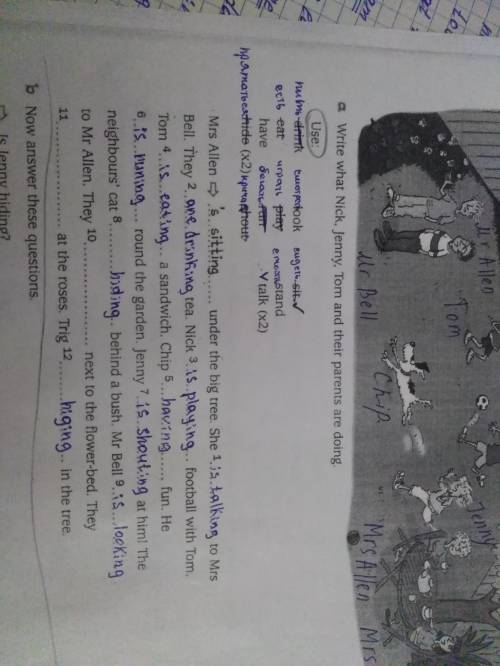 Mr Allen Tom Jenny
Mr Bell Chip Mrs Allen Mrs
a Write what Nick, Jenny, Tom and their parents are doing.
Use: пить drink book sit ✓
есть eat играть play stand
have бежать run ✓ talk (x2)
прятаться hide (x2) кричать shout
Mrs Allen ⇨ 's sitting under the big tree. She 1 is talking to Mrs
Bell. They 2 are drinking tea. Nick 3 is playing football with Tom.
Tom 4 is eating a sandwich. Chip 5 having fun. He
6 is runing round the garden. Jenny 7 is shouting at him! The
neighbours' cat 8 hiding behind a bush. Mr Bell 9 is looking
to Mr Allen. They 10 next to the flower-bed. They
11 at the roses. Trig 12 higing in the tree.
b Now answer these questions.
⇨ Is Jenny hiding?